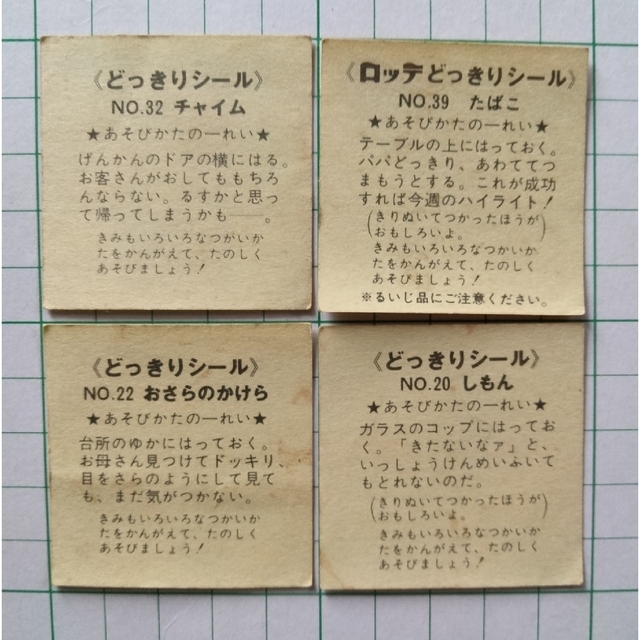 《どっきりシール》
NO.32 チャイム
★あそびかたの一れい★
げんかんのドアの横にはる。
お客さんがおしてももちろ
んならない。るすかと思っ
て帰ってしまうかも――。
きみもいろいろなつかいか
たをかんがえて、たのしく
あそびましょう!
《ロッテどっきりシール》
NO.39 たばこ
★あそびかたの一れい★
テーブルの上にはっておく。
パパどっきり、あわててつ
まもうとする。これが成功
すれば今週のハイライト!
(きりぬいてつかったほうが
おもしろいよ。)
きみもいろいろなつかいか
たをかんがえて、たのしく
あそびましょう!
※るいじ品にご注意ください。
《どっきりシール》
NO.22 おさらのかけら
★あそびかたの一れい★
台所のゆかにはっておく。
お母さん見つけてドッキリ、
目をさらのようにして見て
も、まだ気がつかない。
きみもいろいろなつかいか
たをかんがえて、たのしく
あそびましょう!
《どっきりシール》
NO.20 しもん
★あそびかたの一れい★
ガラスのコップにはってお
く。「きたないなァ」と、
いっしょうけんめいふいて
もとれないのだ。
(きりぬいてつかったほうが
おもしろいよ。)
きみもいろいろなつかいか
たをかんがえて、たのしく
あそびましょう!